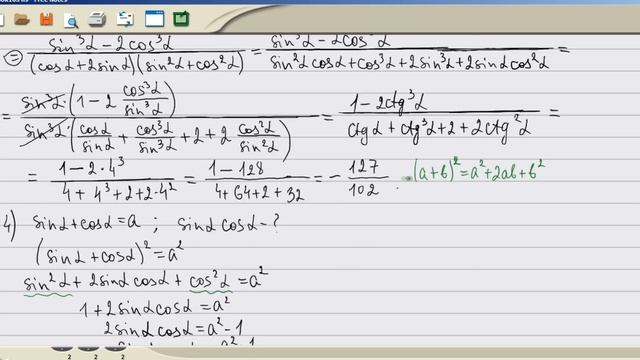 = (sin³α - 2cos³α) / ((cosα + 2sinα)(sin²α + cos²α)) = (sin³α - 2cos³α) / (sin²α cosα + cos³α + 2sin³α + 2sinα cos²α) =
= (sin³α · (1 - 2 cos³α/sin³α)) / (sin³α · (cosα/sinα + cos³α/sin³α + 2 + 2 cos²α/sin²α)) = (1 - 2ctg³α) / (ctgα + ctg³α + 2 + 2ctg²α) =
= (1 - 2·4³) / (4 + 4³ + 2 + 2·4²) = (1 - 128) / (4 + 64 + 2 + 32) = - 127/102 . (a+b)² = a² + 2ab + b²
4) sinα + cosα = a ; sinα cosα - ?
(sinα + cosα)² = a²
sin²α + 2sinα cosα + cos²α = a²
1 + 2sinα cosα = a²
2sinα cosα = a² - 1
2 2 2